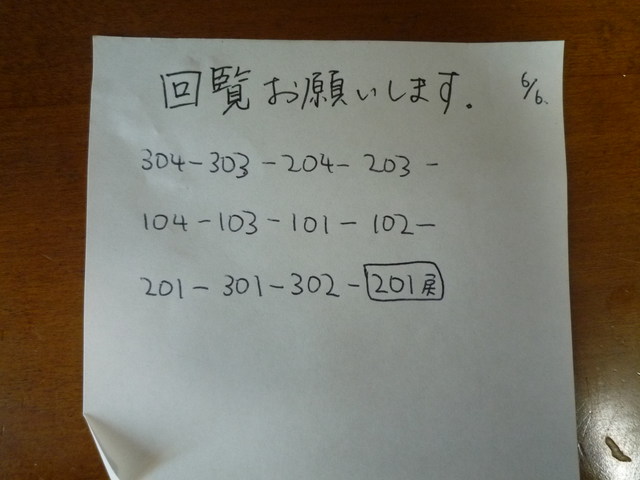 回覧お願いします. 6/6.
304-303-204-203-
104-103-101-102-
201-301-302-201戻